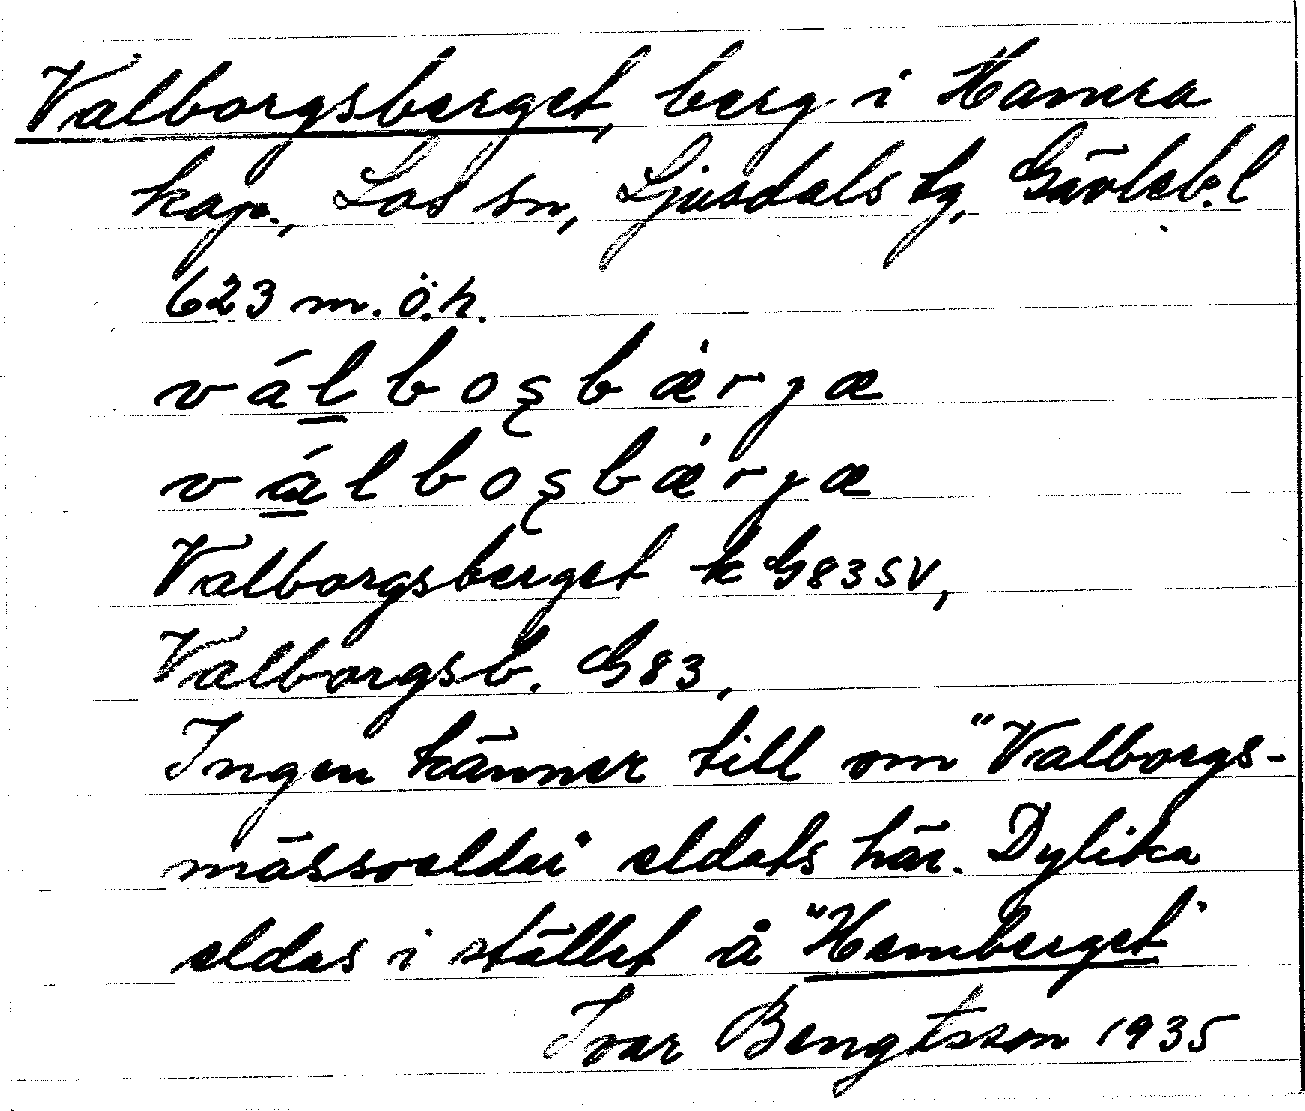 Valborgsberget, berg i Hamra
kap., Los sn, Ljusdals tg, Gävleb. l
623 m. ö. h.
válboʂbǽrjæ
válboʂbǽrjæ
Valborgsberget k G83SV,
Valborgsb. G83,
Ingen känner till om "Valborgs-
mässoeldar" eldats här. Dylika
eldas i stället å "Hemberget"
Ivar Bengtsson 1935